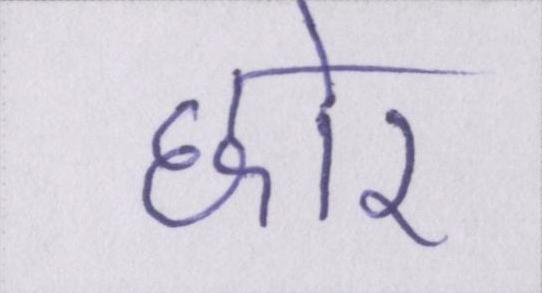 छोर